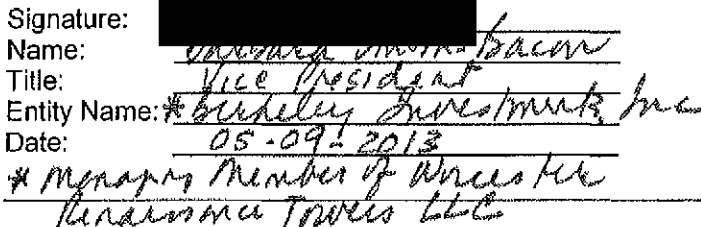 Signature:
Name: Barbara Smith-Bacon
Title: Vice President
Entity Name: * Berkeley Investments, Inc
Date: 05-09-2013
* Managing Member of Worcester
Renaissance Towers LLC